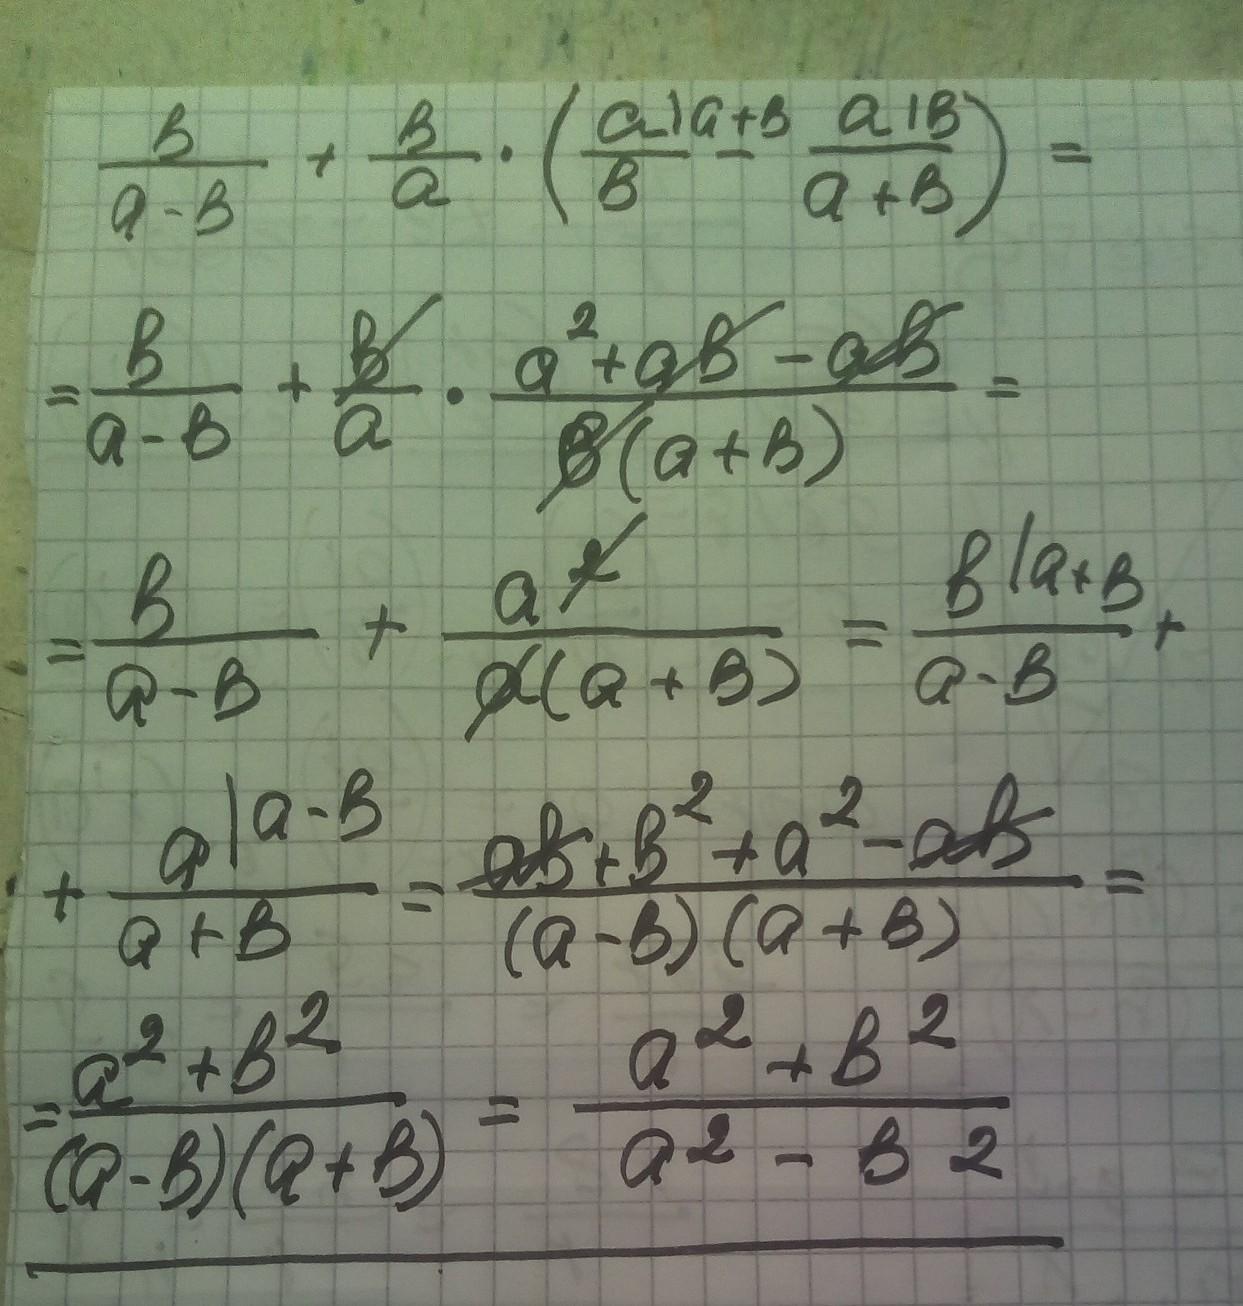 в/(a-в) + в/a · (a|a+в/в - a|в/(a+в)) =
= в/(a-в) + в/a · (a²+aв-aв)/(в(a+в)) =
= в/(a-в) + a²/(a(a+в)) = в|a+в/(a-в) +
+ a|a-в/(a+в) = (aв+в²+a²-aв)/((a-в)(a+в)) =
= (a²+в²)/((a-в)(a+в)) = (a²+в²)/(a²-в²)